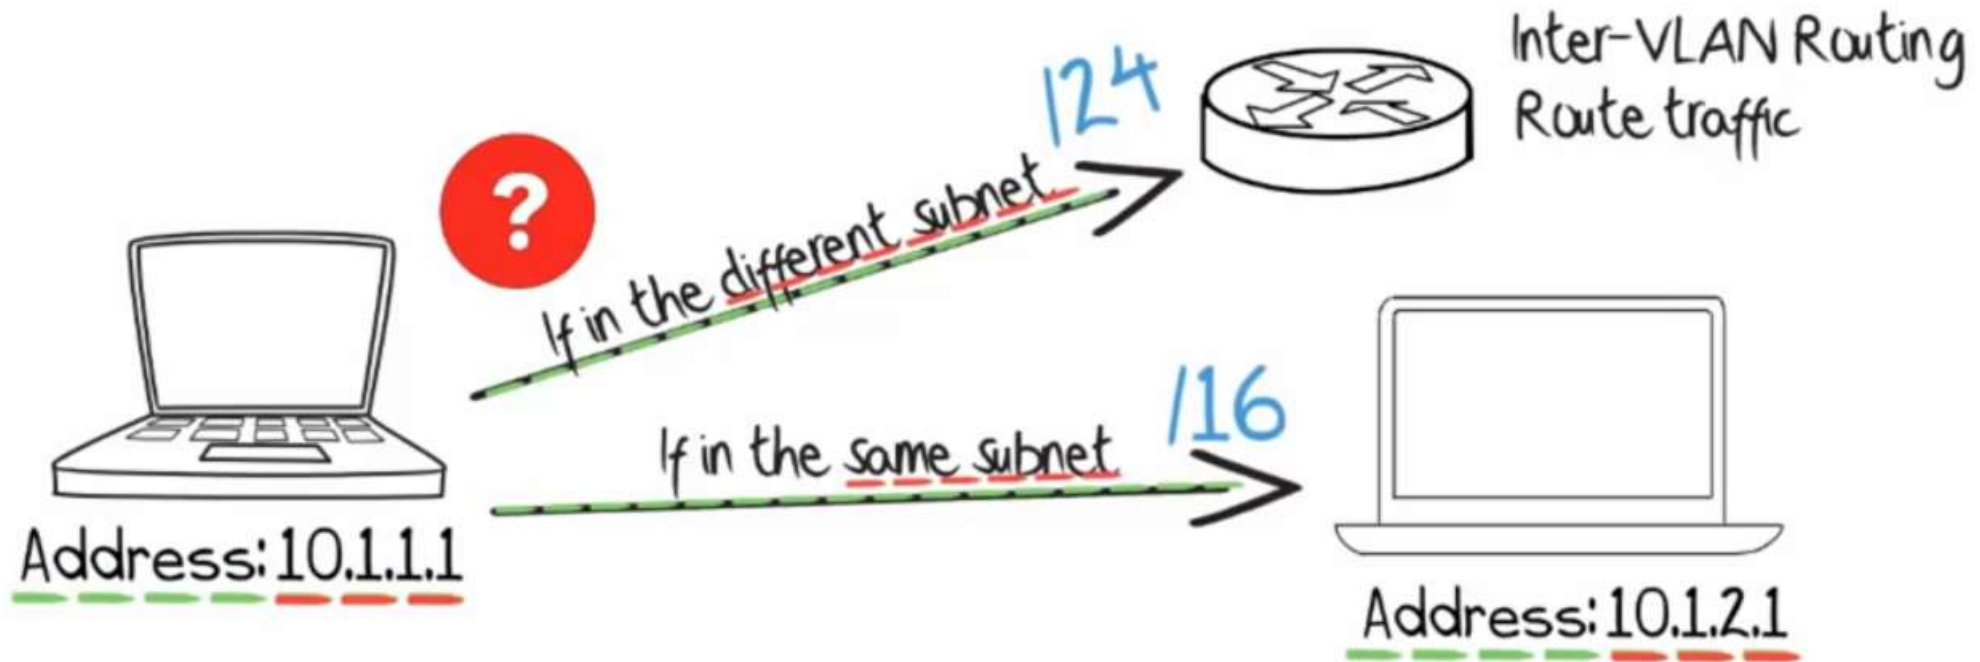 Inter-VLAN Routing
Route traffic
/24
?
If in the different subnet
/16
If in the same subnet
Address: 10.1.1.1
Address: 10.1.2.1